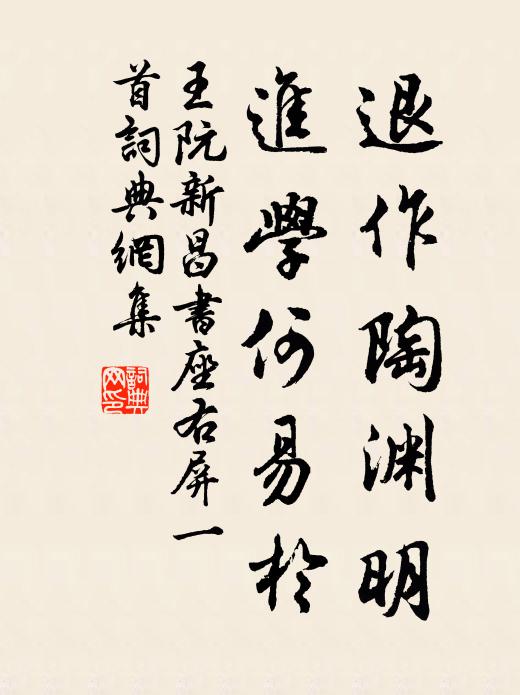 退作陶渊明
進學何易於
王阮新昌書座右屏一
首詞典網集
詞典
网印